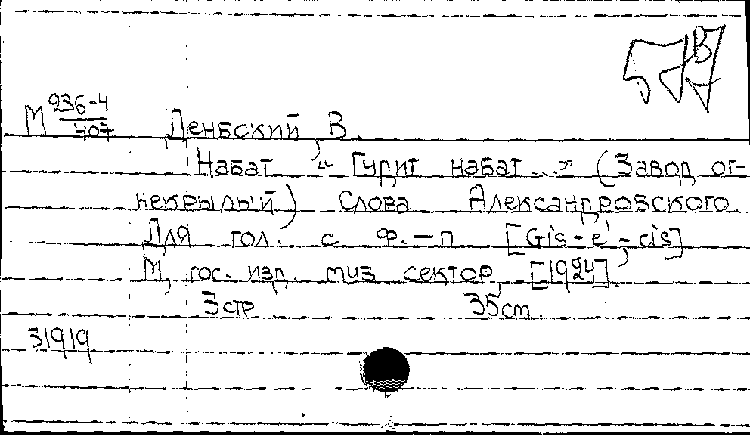 57 В
М 236-4
707
Денбский, В.
Набат „Гудит набат...“ (Завод ог-
некрылый) Слова Александровского.
Для гол. с ф.-п [Gis-e'-cis]
М, гос. изд. муз сектор, [1924].
3стр 35cm.
31919